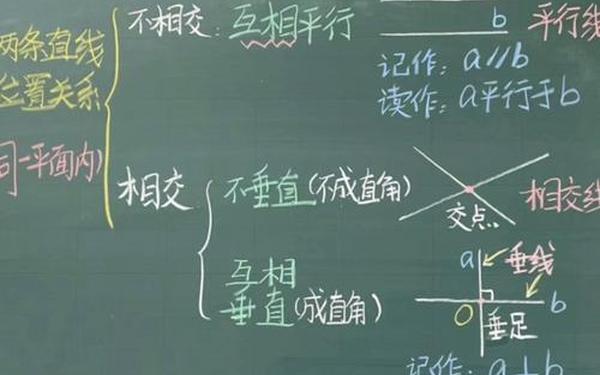 两条直线
位置关系
同一平面内)
不相交: 互相平行
b 平行线
记作: a∥b
读作: a平行于b
相交
不垂直(不成直角)
交点
相交线
互相
垂直(成直角)
a 垂线
b
O 垂足
记作: a⊥b